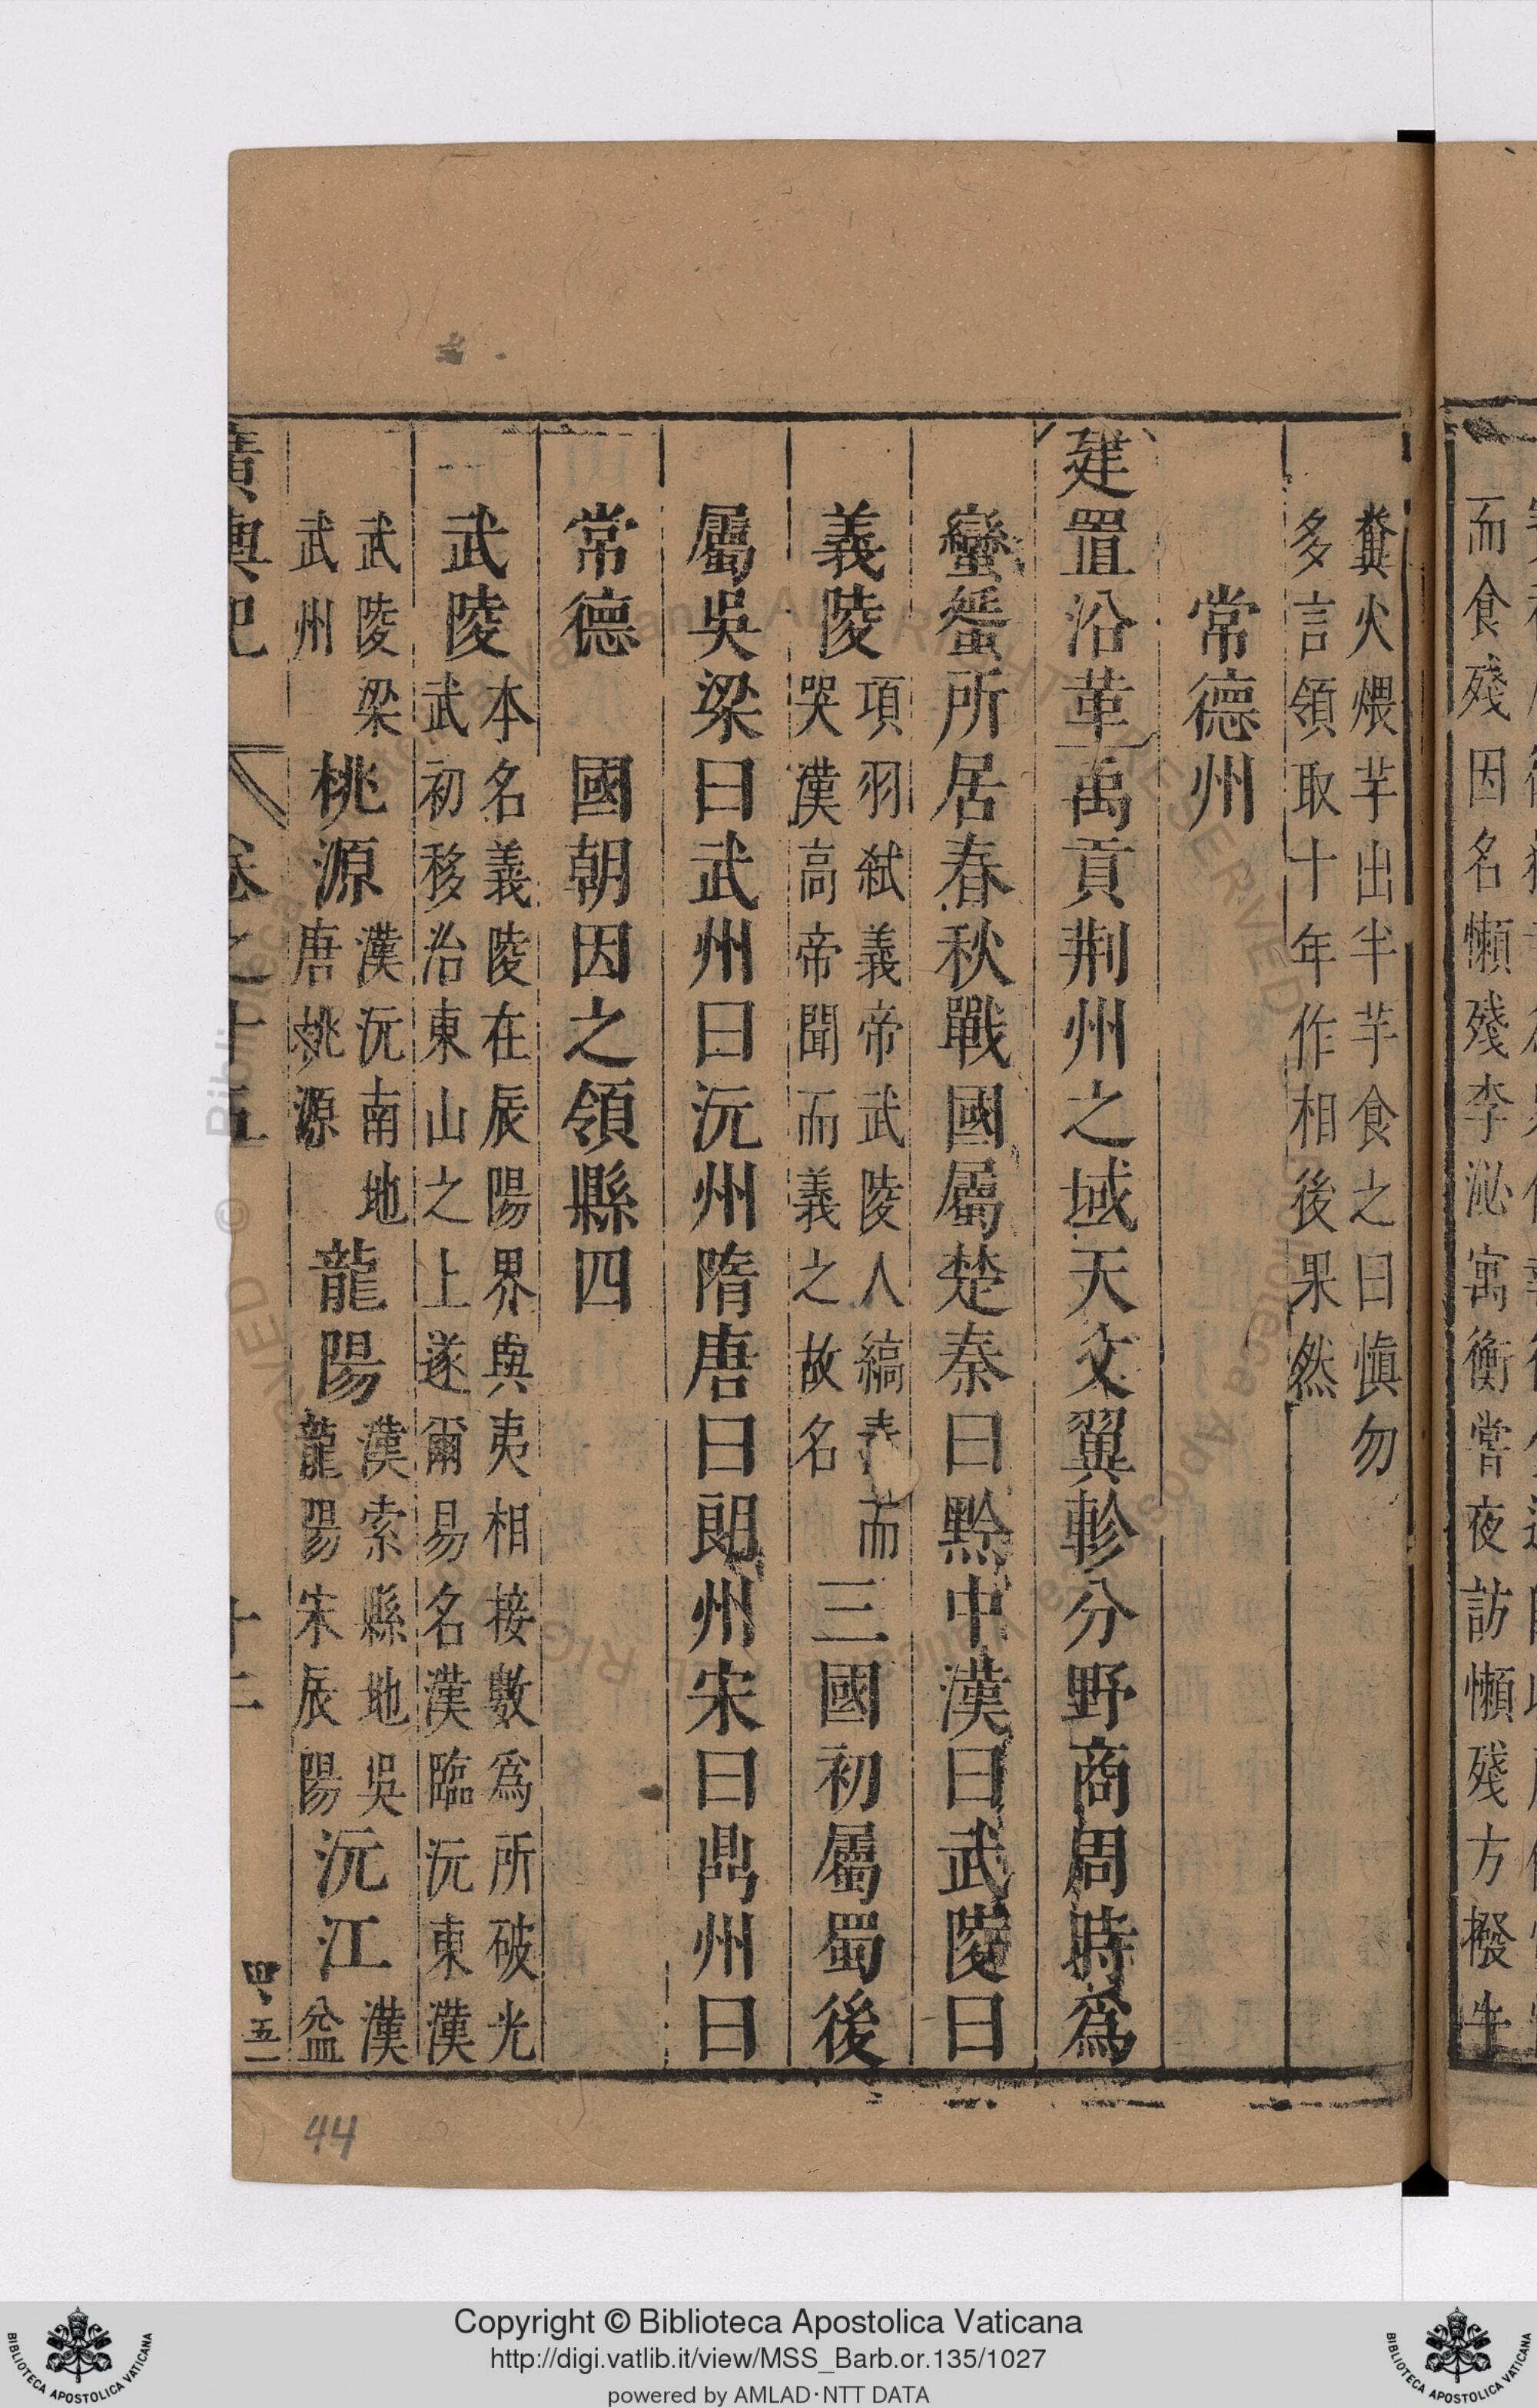 而食殘因名懶殘李泌寓衡嘗夜訪懶殘方撥牛
糞火煨芋出半芋食之曰慎勿
多言領取十年作相後果然
常德州
建置沿革禹貢荆州之域天文翼軫分野商周時爲
蠻蜑所居春秋戰國屬楚秦曰黔中漢曰武陵曰
義陵項羽弑義帝武陵人縞素而
哭漢高帝聞而義之故名三國初屬蜀後
屬吳梁曰武州曰沅州隋唐曰朗州宋曰鼎州曰
常德 國朝因之領縣四
武陵本名義陵在辰陽界與夷相接數爲所破光
武初移治東山之上遂爾易名漢臨沅東漢
武陵梁
武州 桃源漢沅南地
唐桃源 龍陽漢索縣地吳
龍陽宋辰陽 沅江漢
益
廣輿記 卷之十五 十二
44
Copyright © Biblioteca Apostolica Vaticana
http://digi.vatlib.it/view/MSS_Barb.or.135/1027
powered by AMLAD·NTT DATA
BIBLIOTECA APOSTOLICA VATICANA
BIBLIOTECA APOSTOLICA VATICANA